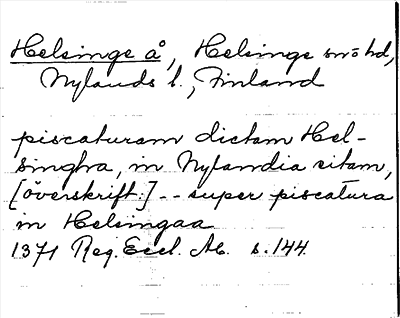 Helsinge å, Helsinge snö hd,
Nylands l., Finland
piscaturam dictam Hel-
singha, in Nylandia sitam,
[överskrift:] -- super piscatura
in Helsingaa
1371 Reg. Eccl. Ab. s. 144.